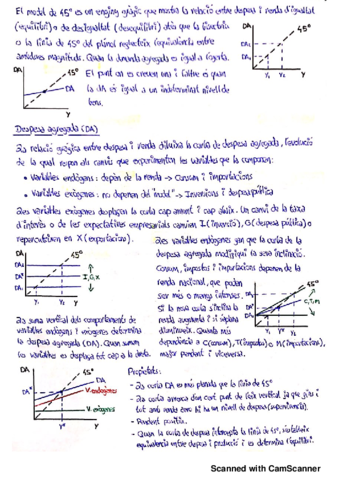 El model de 45º és un enginy gràfic que mostra la relació entre despesa i renda d'igualtat
(equilibri) o de desigualtat (desequilibri) atès que la
o la línia de 45º del plànol reflecteix l'equivalència entre
ambdues magnituds. Quan la demanda agregada és igual a l'oferta.
El punt on es creuen una i l'altre és quan
la DA és igual a un indeterminat nivell de
DA
45º
DA
DA
45º
DA₂
DA₁
Y₁ Y₂ Y
Despesa agregada (DA)
La relació gràfica entre despesa i renda dibuixa la corba de despesa agregada, l'evolució
de la qual respon als canvis que experimenten les variables que la componen:
• Variables endògens: depèn de la renda → Consum i importacions
• Variables exògenes: no depenen del model → Inversions i despesa pública
Les variables exògenes desplacen la corba cap amunt i cap abaix. Un canvi de la taxa
d'interès o de les expectatives empresarials canvien I (inversió), G (despesa pública)
repercuteixen en X (exportacions).
DA
45º
I, G, X
Y₁ Y₂ Y
Les variables endògenes fan que la corba de la
despesa agregada modifiqui la seva inclinació.
Consum, impostos i importacions depenen de la
renda nacional, que poden
ser més o menys intenses.
Si la nova corba s'inclina la
renda augmenta i si
disminueix. Quanta més
dependència a C (consum), T (impostos) o M (importacions),
major pendent i viceversa.
45º
C, T, M
La suma vertical dels comportaments de
variables endògens i exògenes determina
la despesa agregada (DA). Quan sumem
les variables es desplaça tot cap a la dreta.
DA
45º
DA
V. endògenes
V. exògenes
Propietats:
- La corba DA és més planera que la línia de 45º
- La corba arrenca d'un cert punt de l'eix vertical ja que fins i
tot amb renda zero hi ha un nivell de despesa (supervivència).
- Pendent positiu.
- Quan la corba de despesa intercepta la línia de 45º,
equivalència entre despesa i producció i es determina l'equilibri.
Scanned with CamScanner